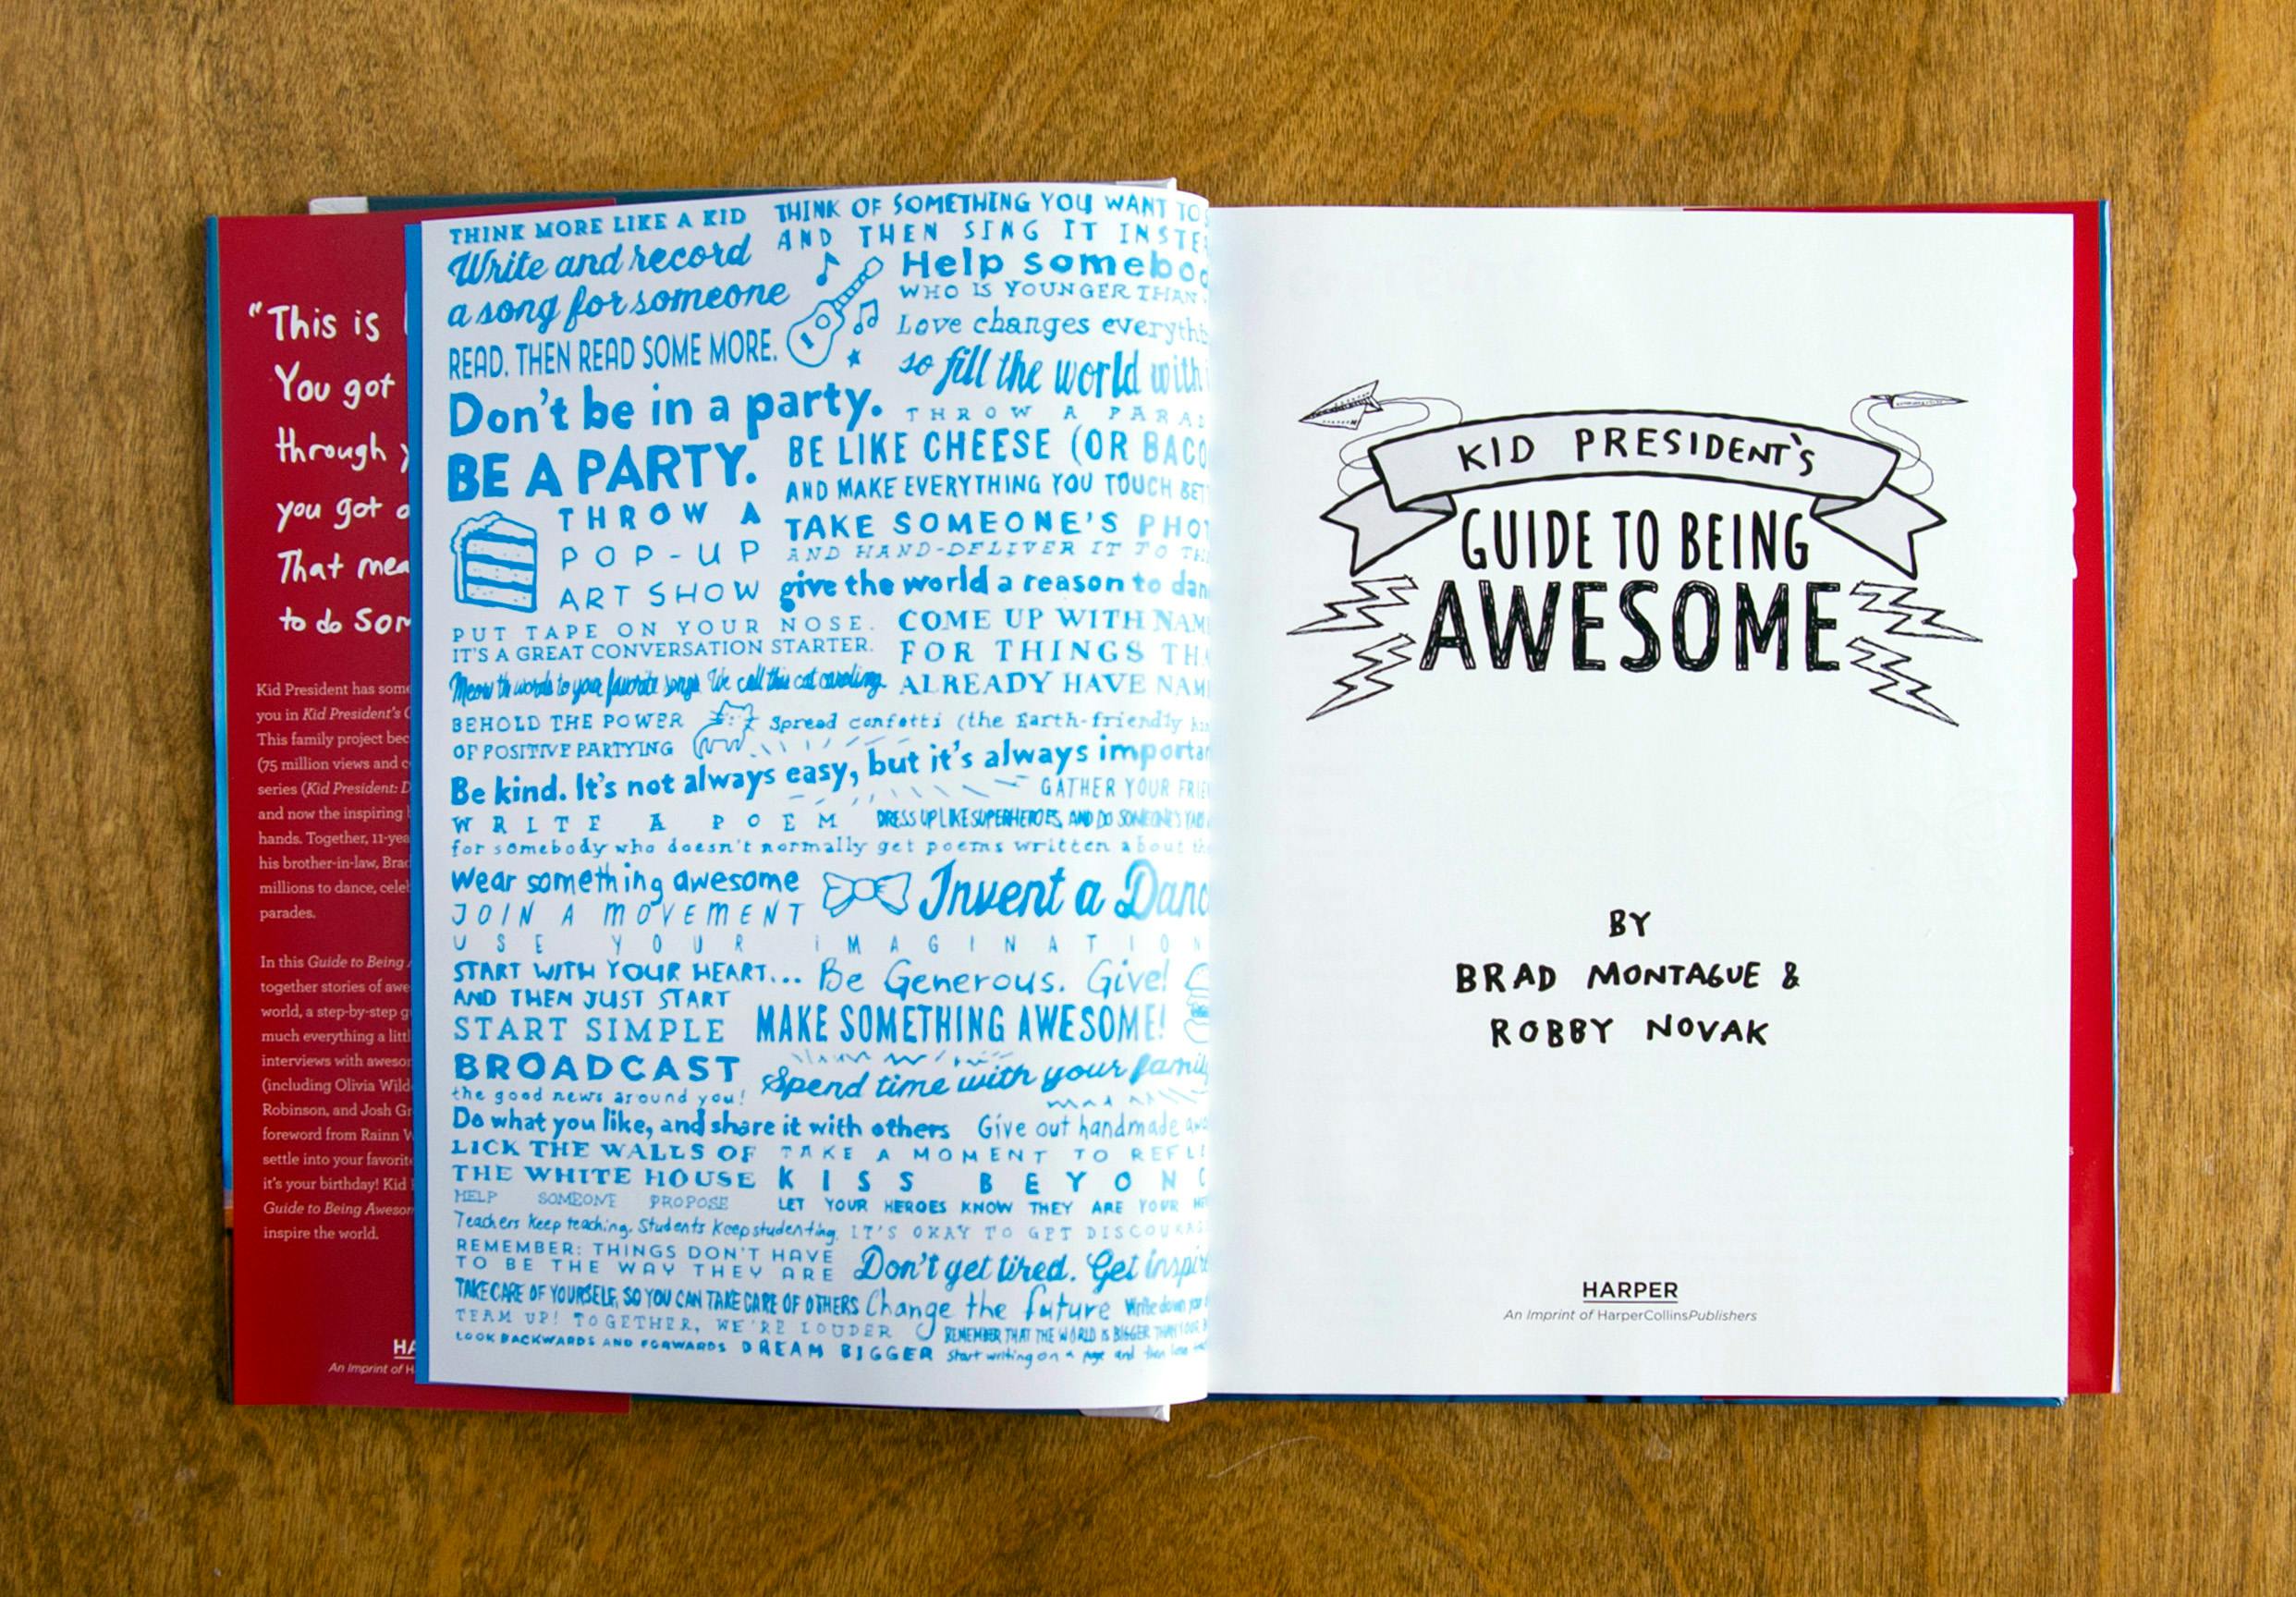 "This is
You got
through
you got
That mea
to do Som
Kid President has some
you in Kid President's G
This family project bec
(75 million views and c
series (Kid President: D
and now the inspiring
hands. Together, 11-yea
his brother-in-law, Brad
millions to dance, celeb
parades.
In this Guide to Being
together stories of awe
world, a step-by-step g
much everything a littl
interviews with awesom
(including Olivia Wild
Robinson, and Josh Gr
foreword from Rainn W
settle into your favorit
it's your birthday! Kid
Guide to Being Awesom
inspire the world.
HA
An Imprint of H
THINK MORE LIKE A KID
THINK OF SOMETHING YOU WANT TO
AND THEN SING IT INSTE
Write and record
a song for someone
Help somebod
WHO IS YOUNGER THAN
Love changes everythi
so fill the world with
READ. THEN READ SOME MORE.
Don't be in a party.
BE A PARTY.
THROW A PARA
BE LIKE CHEESE (OR BACO
AND MAKE EVERYTHING YOU TOUCH BET
THROW A
POP-UP
ART SHOW
TAKE SOMEONE'S PHOT
AND HAND-DELIVER IT TO TH
give the world a reason to dan
PUT TAPE ON YOUR NOSE.
IT'S A GREAT CONVERSATION STARTER.
COME UP WITH NAM
FOR THINGS THA
ALREADY HAVE NAM
Meow the words to your favorite songs. We call this cat caroling.
BEHOLD THE POWER
OF POSITIVE PARTYING
Spread confetti (the Earth-friendly
Be kind. It's not always easy, but it's always importan
GATHER YOUR FRIE
DRESS UP LIKE SUPERHEROES, AND DO SOMEONE'S YARD
WRITE A POEM
for somebody who doesn't normally get poems written about
Wear something awesome
JOIN A MOVEMENT
Invent a Danc
USE YOUR IMAGINATION
START WITH YOUR HEART...
AND THEN JUST START
Be Generous. Give!
START SIMPLE
MAKE SOMETHING AWESOME!
BROADCAST
the good news around you!
Spend time with your family
Do what you like, and share it with others
Give out handmade
LICK THE WALLS OF
THE WHITE HOUSE
TAKE A MOMENT TO REFLE
KISS BEYONC
HELP SOMEONE PROPOSE
LET YOUR HEROES KNOW THEY ARE YOUR
Teachers keep teaching. Students keep studenting.
IT'S OKAY TO GET DISCOURAG
REMEMBER: THINGS DON'T HAVE
TO BE THE WAY THEY ARE
Don't get tired. Get inspire
TAKE CARE OF YOURSELF, SO YOU CAN TAKE CARE OF OTHERS
Change the future
Write down your
TEAM UP! TOGETHER, WE'RE LOUDER
REMEMBER THAT THE WORLD IS BIGGER THAN YOUR
LOOK BACKWARDS AND FORWARDS
DREAM BIGGER
Start writing on a page and then
KID PRESIDENT'S
GUIDE TO BEING
AWESOME
BY
BRAD MONTAGUE &
ROBBY NOVAK
HARPER
An Imprint of HarperCollinsPublishers